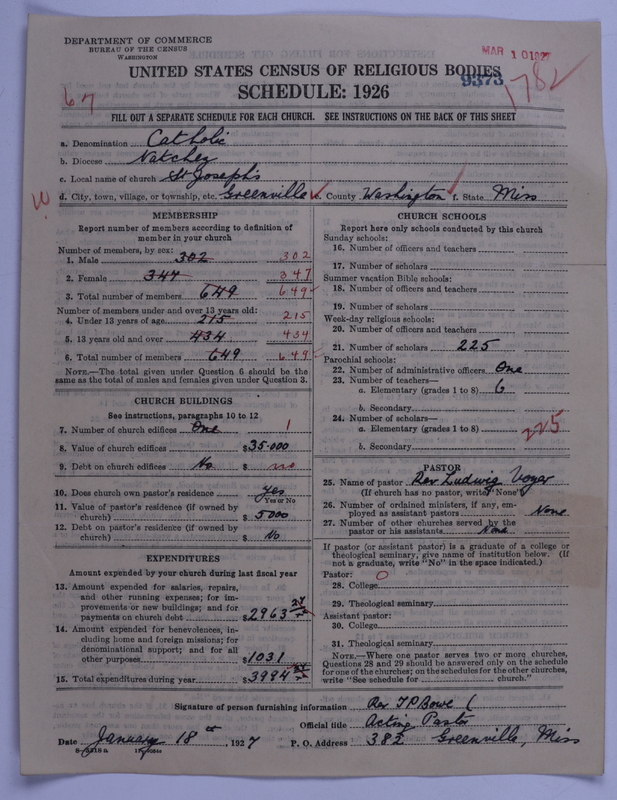 DEPARTMENT OF COMMERCE
BUREAU OF THE CENSUS
WASHINGTON
MAR 10 1927
9373
1782
67
UNITED STATES CENSUS OF RELIGIOUS BODIES
SCHEDULE: 1926
FILL OUT A SEPARATE SCHEDULE FOR EACH CHURCH. SEE INSTRUCTIONS ON THE BACK OF THIS SHEET
a. Denomination Catholic
b. Diocese Natchez
c. Local name of church St Joseph's
d. City, town, village, or township, etc. Greenville e. County Washington f. State Miss
MEMBERSHIP
Report number of members according to definition of
member in your church
Number of members, by sex:
1. Male 302 302
2. Female 347 347
3. Total number of members 649 649
Number of members under and over 13 years old:
4. Under 13 years of age 215 215
5. 13 years old and over 434 434
6. Total number of members 649 649
NOTE.—The total given under Question 6 should be
same as the total of males and females given under Question 3.
CHURCH BUILDINGS
See instructions, paragraphs 10 to 12
7. Number of church edifices One 1
8. Value of church edifices $35.000
9. Debt on church edifices No $ no
10. Does church own pastor's residence Yes
Yes or No
11. Value of pastor's residence (if owned by
church) $ 5000
12. Debt on pastor's residence (if owned by
church) $ No
EXPENDITURES
Amount expended by your church during last fiscal year
13. Amount expended for salaries, repairs,
and other running expenses; for im-
provements or new buildings; and for
payments on church debt $2963
14. Amount expended for benevolences, in-
cluding home and foreign missions; for
denominational support; and for all
other purposes $1031
15. Total expenditures during year $3994
CHURCH SCHOOLS
Report here only schools conducted by this church
Sunday schools:
16. Number of officers and teachers
17. Number of scholars
Summer vacation Bible schools:
18. Number of officers and teachers
19. Number of scholars
Week-day religious schools:
20. Number of officers and teachers
21. Number of scholars 225
Parochial schools:
22. Number of administrative officers One
23. Number of teachers—
a. Elementary (grades 1 to 8) 6
b. Secondary
24. Number of scholars—
a. Elementary (grades 1 to 8) 225
b. Secondary
PASTOR
25. Name of pastor Rev. Ludwig Voger
(If church has no pastor, write "None")
26. Number of ordained ministers, if any, em-
ployed as assistant pastors None
27. Number of other churches served by the
pastor or his assistants None
If pastor (or assistant pastor) is a graduate of a college or
theological seminary, give name of institution below. (If
not a graduate, write "No" in the space indicated.)
Pastor: O
28. College
29. Theological seminary
Assistant pastor:
30. College
31. Theological seminary
NOTE.—Where one pastor serves two or more churches,
Questions 28 and 29 should be answered only on the schedule
for one of the churches; on the schedules for the other churches,
write "See schedule for church."
Signature of person furnishing information Rev T P Bowe
Official title Acting Pastor
Date January 18 1927 P. O. Address 382 Greenville, Miss